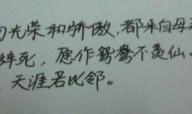 光荣和骄傲,都来自母
死,愿作鸳鸯不羡仙。
天涯若比邻。